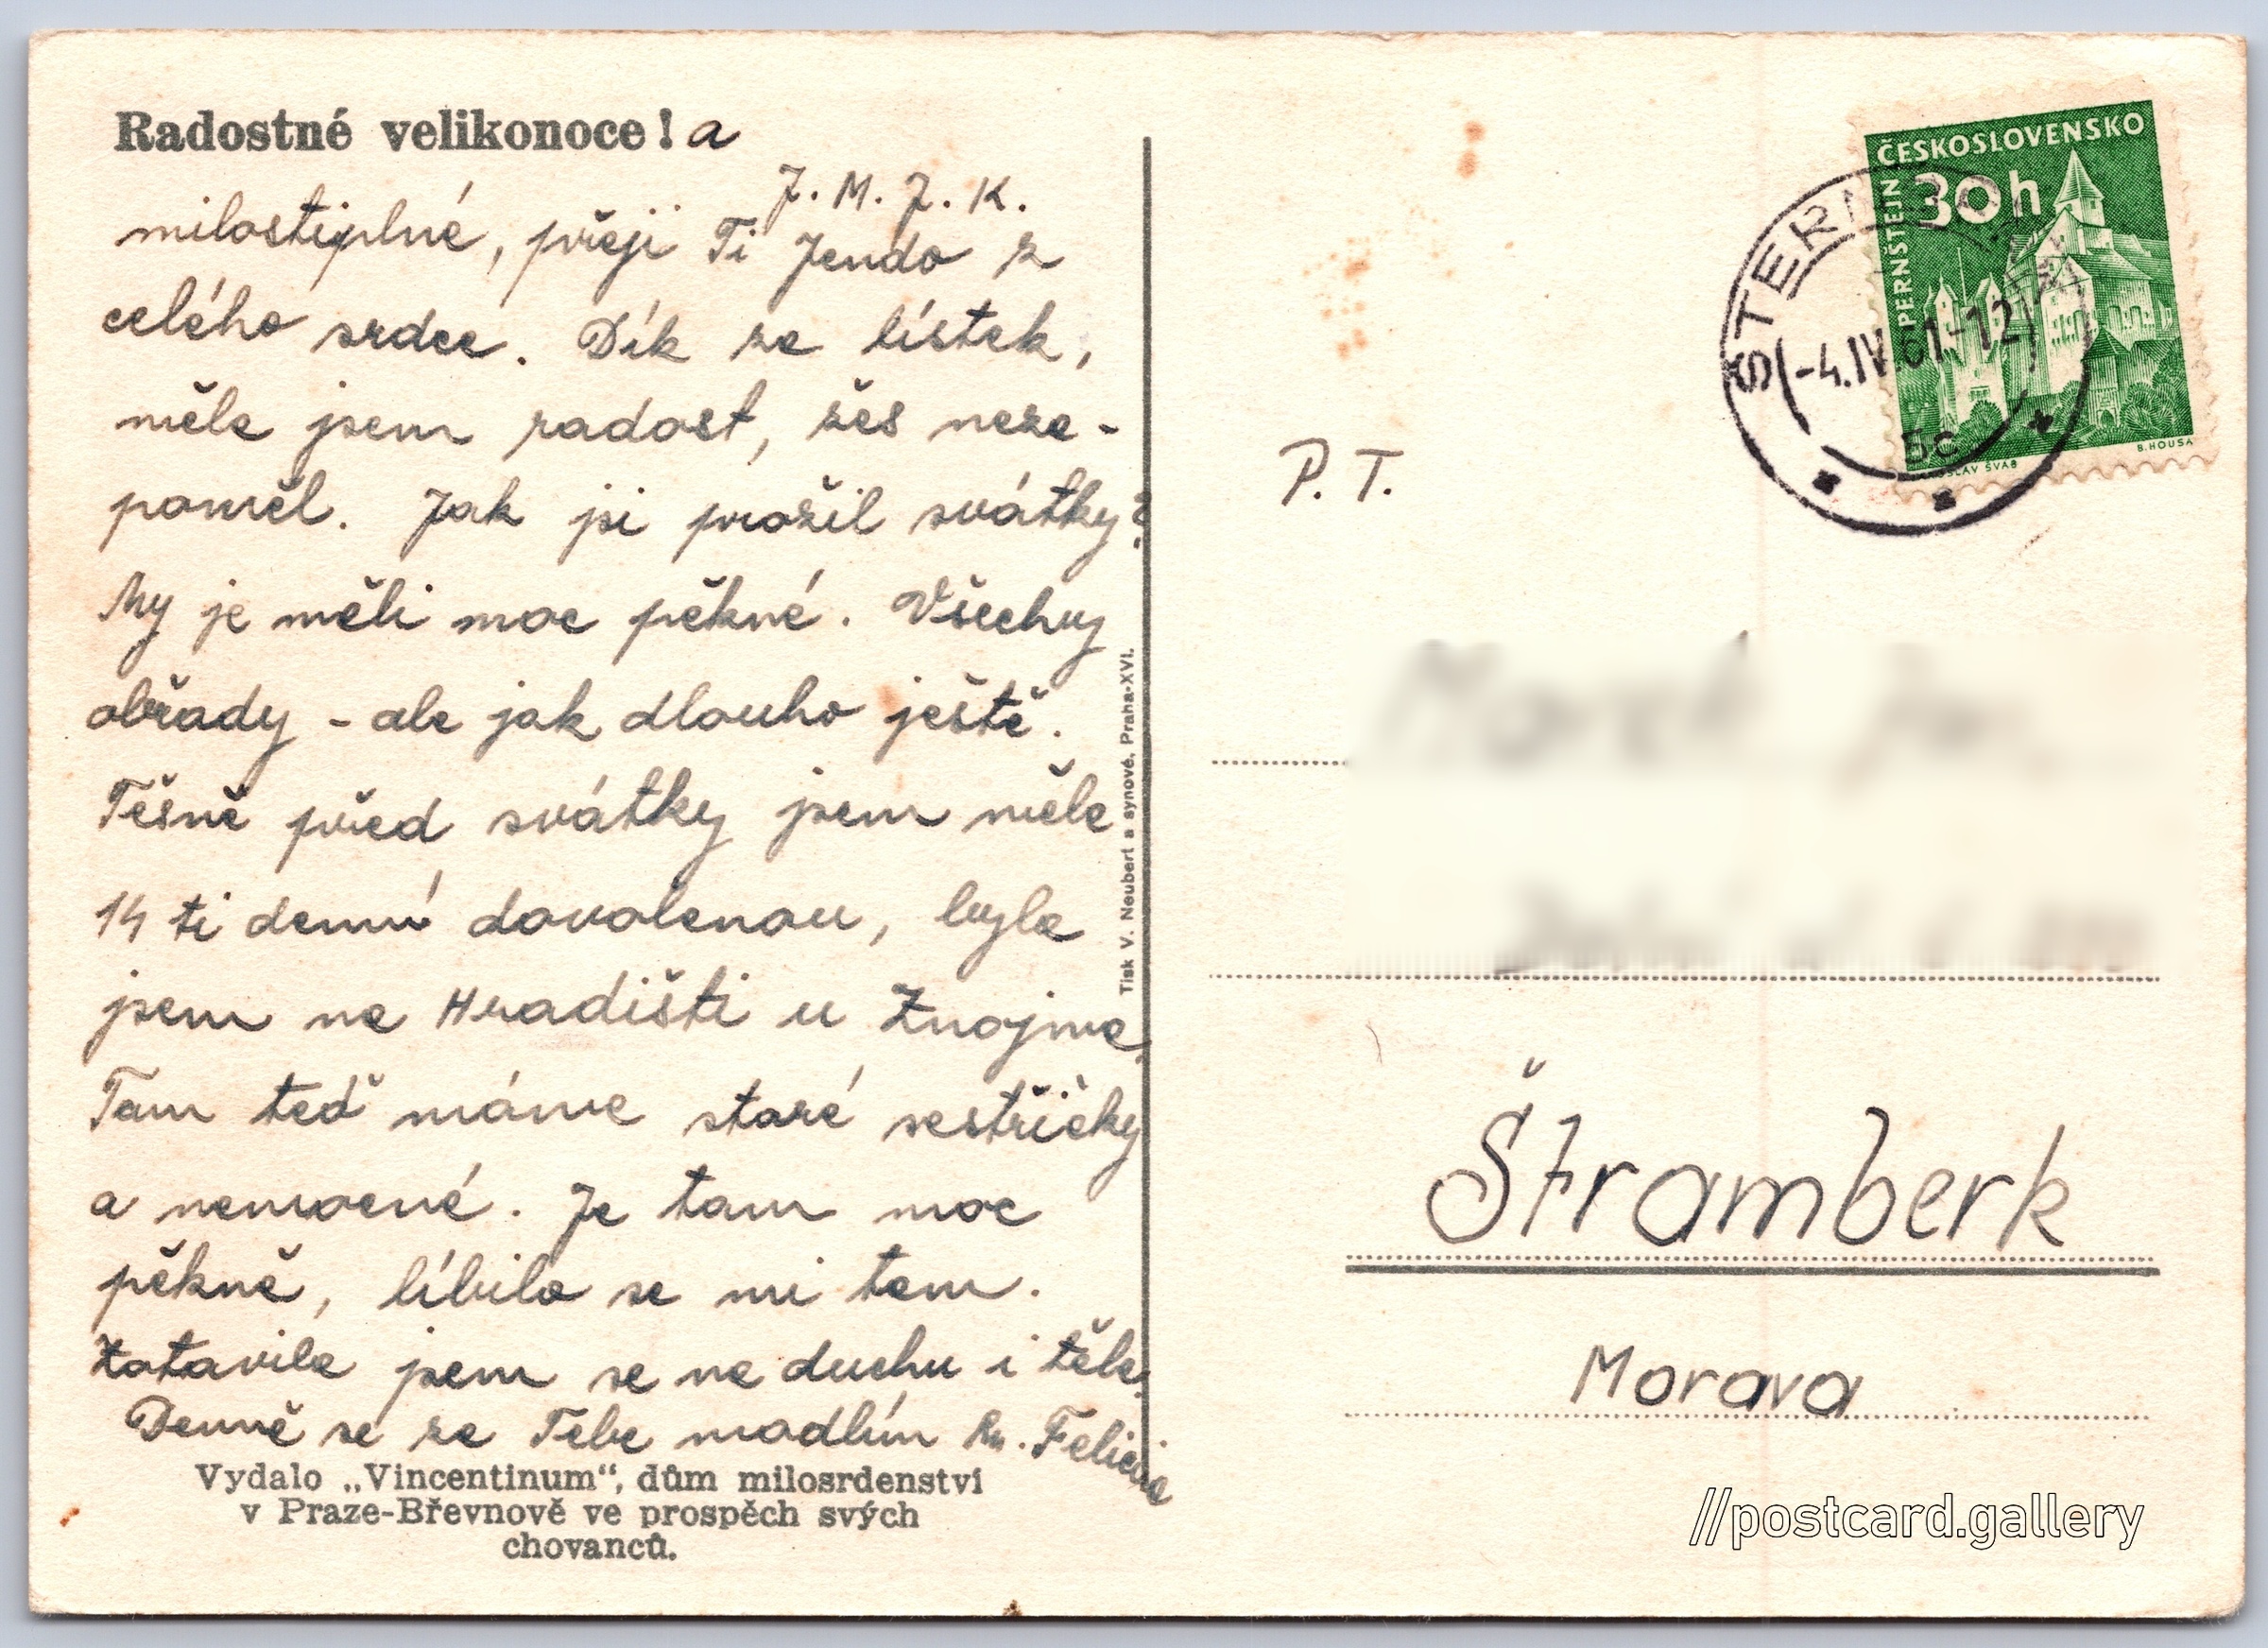 Radostné velikonoce! a
J. M. J. K.
milostiplné, přeji Ti Jendo z
celého srdce. Dík za lístek,
měla jsem radost, žes neza-
poměl. Jak jsi prožil svátky?
My je měli moc pěkné. Všechny
obřady - ale jak dlouho ještě.
Těšně před svátky jsem měla
14 ti denní dovolenou, byla
jsem na Hradišti u Znojma.
Tam teď máme staré sestřičky
a nemocné. Je tam moc
pěkně, líbilo se mi tam.
Zotavila jsem se na duchu i těle.
Denně se za Tebe modlím Felicie
Vydalo „Vincentinum“, dům milosrdenství
v Praze-Břevnově ve prospěch svých
chovanců.
Tisk V. Neubert a synové, Praha-XVI.
ČESKOSLOVENSKO
30h
PERNŠTEJN
ŠVAB
B. HOUSA
ŠTERN
-4.IV.61-12
5c
P. T.
Štramberk
Morava
//postcard.gallery